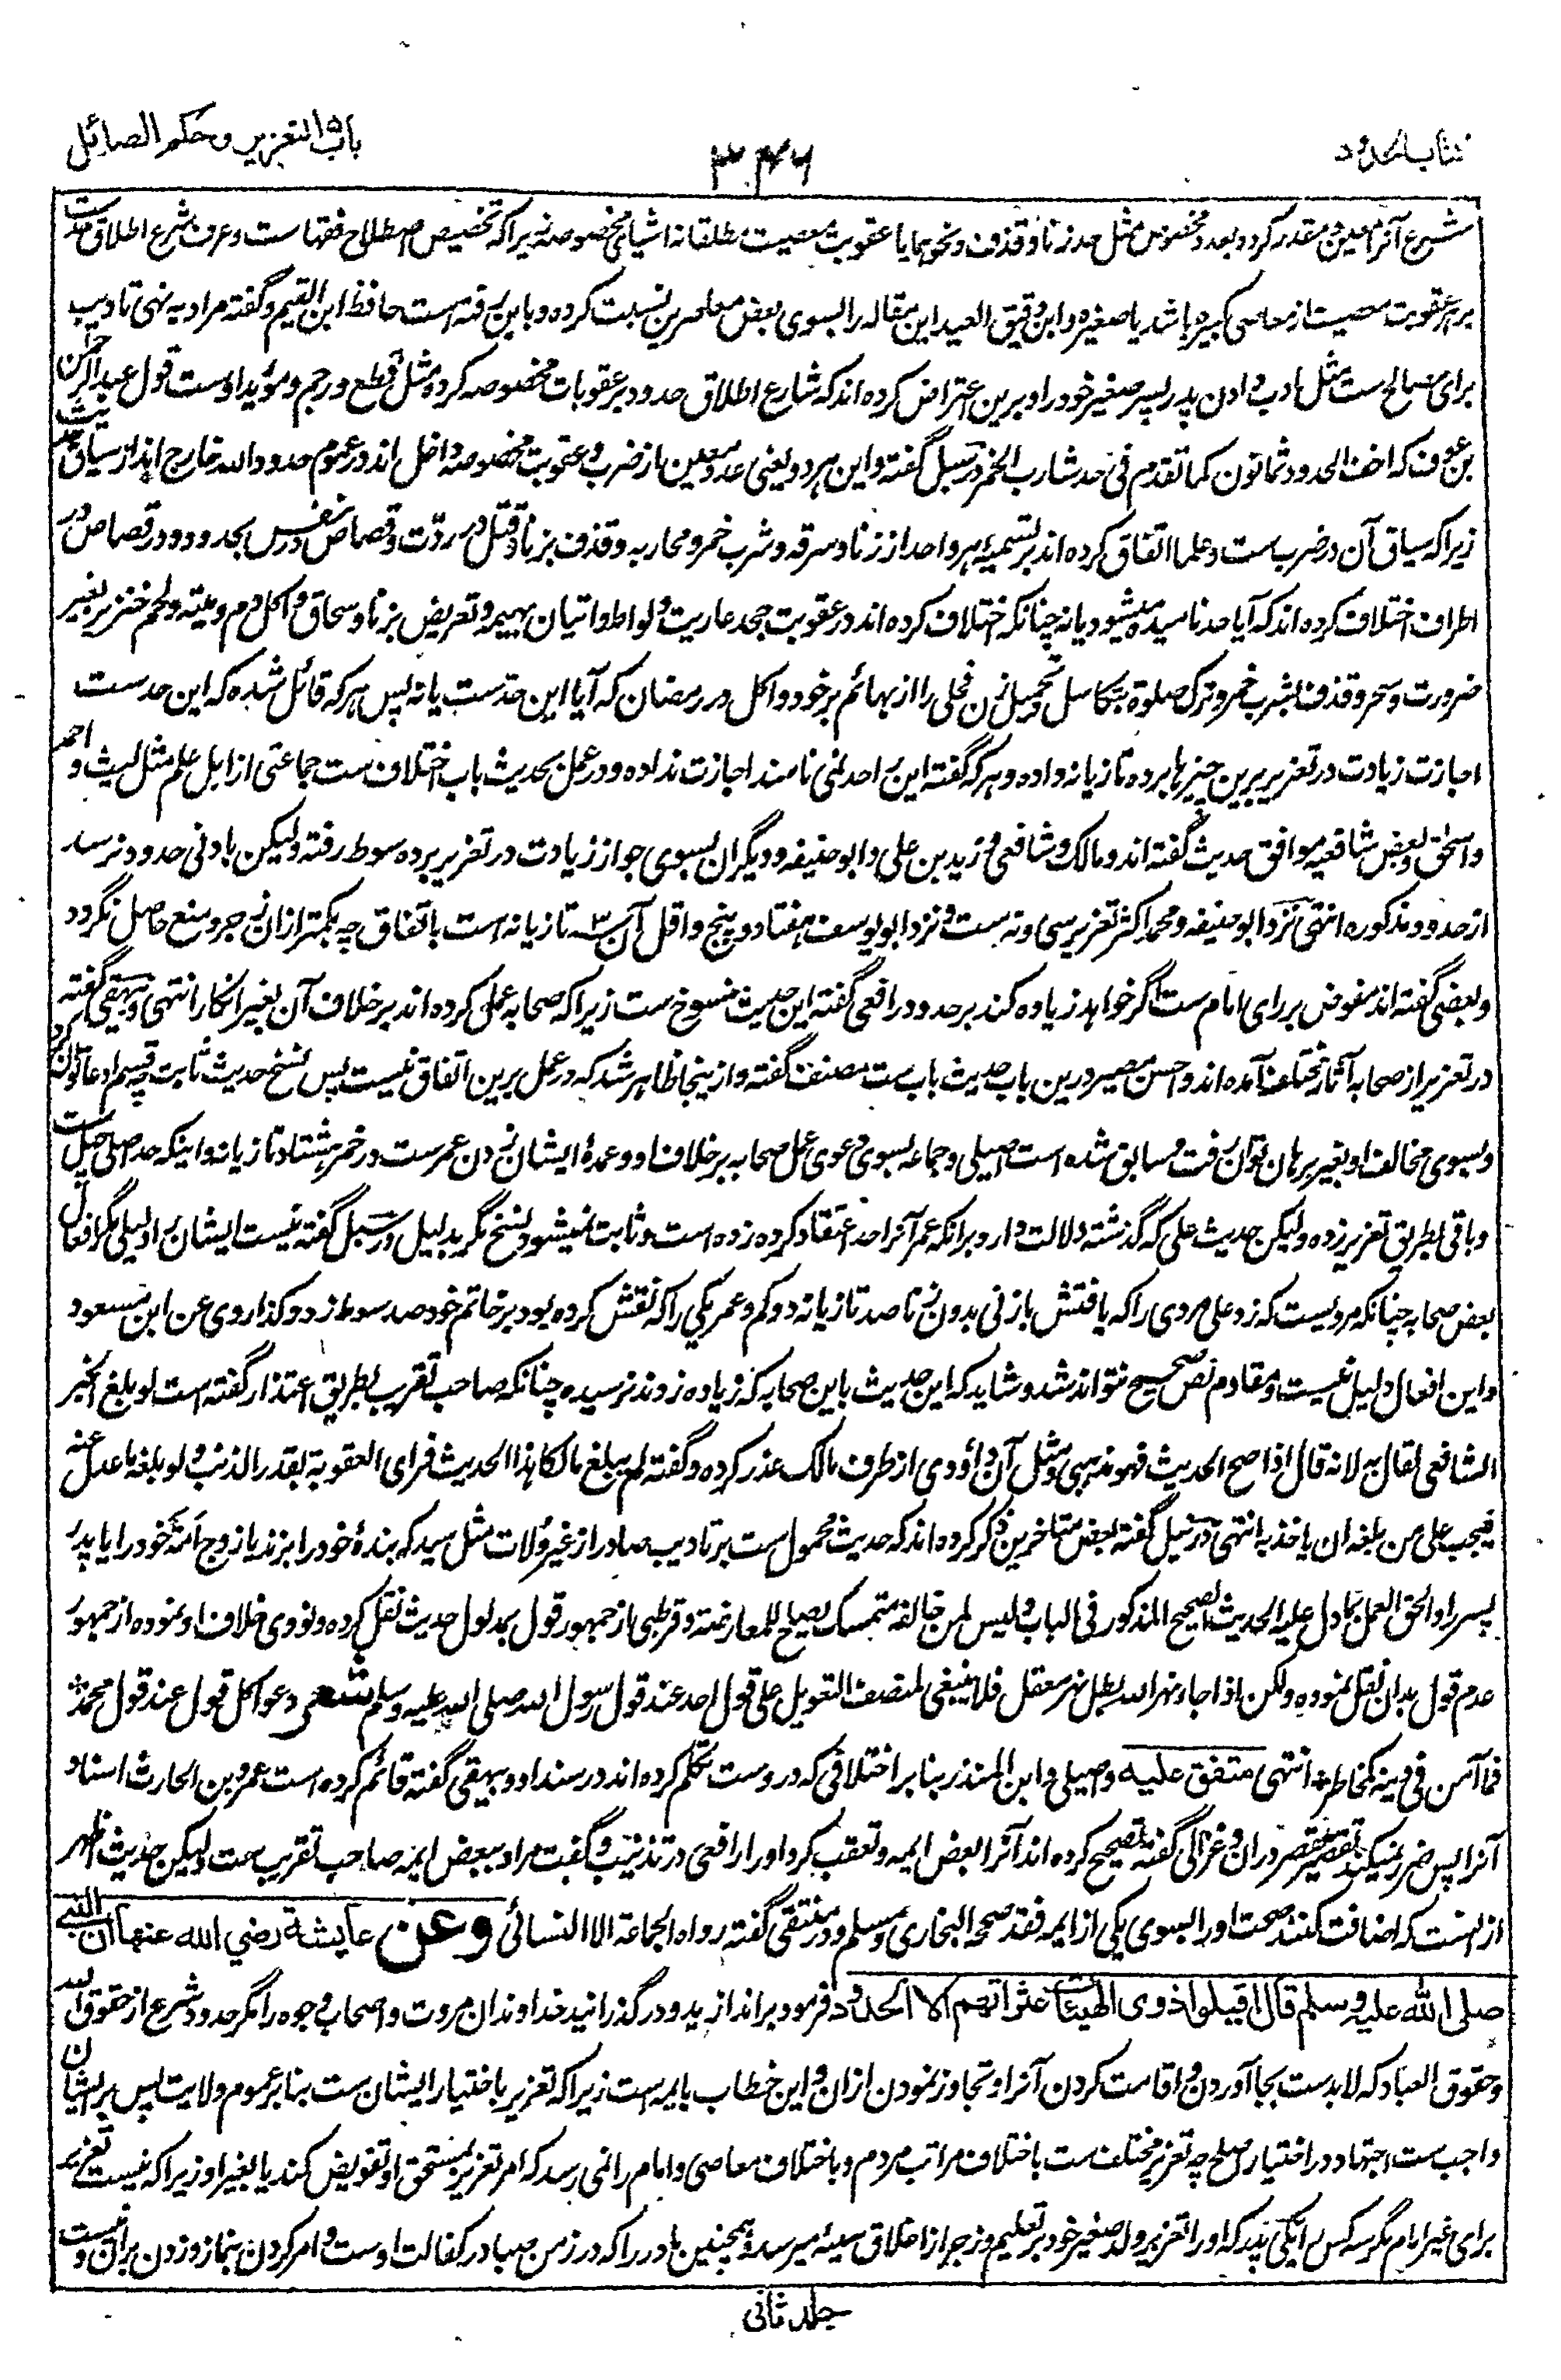 کتاب الحدود
۳۴۶
باب التعزیر وحکم الصائل
شرع آنرا معین و مقدر کرده بعدد مخصوص مثل حد زنا و قذف و نحوهما یا عقوبت معصیت مطلقا نه اشیای مخصوصه زیراکه تخصیص اصطلاح فقهاست و عرف شرع اطلاق حد ست
بر هر عقوبت معصیت از معاصی کبیره باشد یا صغیره و ابن دقیق العید این مقاله را بسوی بعض معاصرین نسبت کرده و باین رفته است حافظ ابن القیم و گفته مراد به نهی تادیب
برای مصالح ست مثل ادب دادن پدر پسر صغیر خود را و برین اعتراض کرده اند که شارع اطلاق حدود بر عقوبات مخصوصه کرده مثل قطع و رجم و مؤید اوست قول عبدالرحمن
بن عوف که اخف الحدود ثمانون کما تقدم فی حد شارب الخمر در سبل گفته و این هر دو یعنی عدد معین از ضرب و عقوبت مخصوصه داخل اند در عموم حدود الله خارج اند از سیاق حدیث
زیراکه سیاق آن در ضرب ست و علما اتفاق کرده اند بر تسمیهٔ هر واحد از زنا و سرقه و شرب خمر و محاربه و قذف بزنا و قتل در ردّت و قصاص در نفس بحدود و در قصاص در
اطراف اختلاف کرده اند که آیا حد نامیده میشود یا نه چنانکه اختلاف کرده اند در عقوبت جحد عاریت و لواط و اتیان بهیمه و تعریض بزنا و سحاق و اکل دم و میته و لحم خنزیر بغیر
ضرورت و سحر و قذف بشرب خمر و ترک صلوة بتکاسل و تحمیل زن فحلی را از بهائم بر خود و اکل در رمضان که آیا این حدست یا نه پس هر که قائل شده که این حدست
اجازت زیادت در تعزیر برین چیزها بر ده تازیانه داده و هر که گفته این را حد نمی نامند اجازت نداده و در عمل بحدیث باب اختلاف ست جماعتی از اهل علم مثل لیث و احمد
و اسحق و بعض شافعیه موافق حدیث گفته اند و مالک و شافعی و زید بن علی و ابوحنیفه و دیگران بسوی جواز زیادت در تعزیر بر ده سوط رفته ولیکن بادنی حدود نرسد
از حدود مذکوره انتهی نزد ابوحنیفه و محمد اکثر تعزیر سی و نه ست و نزد ابویوسف هفتاد و پنج و اقل آن ۳ تازیانه است باتفاق چه بکمتر ازان زجر و منع حاصل نگردد
و بعضی گفته اند مفوض بر رای امام ست اگر خواهد زیاده کند بر حدود رافعی گفته این حدیث منسوخ ست زیراکه صحابه عمل کرده اند بر خلاف آن بغیر انکار انتهی و بیهقی گفته
در تعزیر از صحابه آثار مختلف آمده اند و احسن مصیر درین باب حدیث باب ست مصنف گفته و ازینجا ظاهر شد که در عمل برین اتفاق نیست پس نسخ حدیث ثابت چه قسم ادعا توان کرد
و بسوی مخالف او بغیر برهان توان رفت و سابق شده است اصیلی و جماعه بسوی دعوی عمل صحابه بر خلاف او و عمدهٔ ایشان زدن عمرست در خمر هشتاد تازیانه و اینکه حد اصلی چهل ست
و باقی بطریق تعزیر زده ولیکن حدیث علی که گذشته دلالت دارد برانکه عمر آنرا حد اعتقاد کرده زده است و ثابت نمیشود نسخ مگر بدلیل و در سبل گفته نیست ایشان را دلیلی مگر افعال
بعض صحابه چنانکه مرویست که زد علی مردی را که یافتش با زنی بدون زنا صد تازیانه دو کم و عمر یکی را که نقش کرده بود بر خاتم خود صد سوط زد و کذا روی عن ابن مسعود
و این افعال دلیل نیست و مقادم نص صحیح نتواند شد و شاید که این حدیث باین صحابه که زیاده زدند نرسیده چنانکه صاحب تقریب بطریق اعتذار گفته است لو بلغ الخبر
الشافعی لقال به لانه قال اذا صح الحدیث فهو مذهبی و مثل آن داؤدی از طرف مالک عذر کرده و گفته لم یبلغ مالکا هذا الحدیث فرای العقوبة بقدر الذنب ولو بلغه ما عدل عنه
فیجب علی من بلغه ان یاخذ به انتهی در نیل گفته بعض متاخرین ذکر کرده اند که حدیث محمول ست بر تادیب صادر از غیر ولات مثل سید که بندهٔ خود را بزند یا زوج امتهٔ خود را یا پدر
پسر را و الحق العمل بما دل علیه الحدیث الصحیح المذکور فی الباب و لیس لمن خالفه متمسک یصلح للمعارضة و قرطبی از جمهور قول بمدلول حدیث نقل کرده و نووی خلاف او نموده از جمهور
عدم قول بدان نقل نموده ولکن اذا جاء نهر الله بطل نهر معقل فلا ینبغی لمنصف التعویل علی قول احد عند قول رسول الله صلی الله علیه وسلم شعر دعوا کل قول عند قول محمد
فما آمن فی دینه کمخاطر انتهی متفق علیه و اصیلی و ابن المنذر بنا بر اختلافی که دروست تکلم کرده اند در سند او و بیهقی گفته قائم کرده است عمرو بن الحارث اسناد
آنرا پس ضرر نمیکند تقصیر مقصر دران و غزالی گفته تصحیح کرده اند آنرا بعض ایمه و تعقب کرد او را رافعی در تذنیب و گفت مراد ببعض ایمه صاحب تقریب ست ولیکن حدیث اظهر
ازانست که اضافت کنند صحت او را بسوی یکی از ایمه فقد صححه البخاری و مسلم و در منتقی گفته رواه الجماعة الا النسائی وعن عایشة رضي الله عنها ان النبي
صلی الله علیه وسلم قال اقیلوا ذوی الهیئات عثراتهم الا الحدود فرمود براندازید و درگذرانید خداوندان مروت و اصحاب وجوه را مگر حدود شرع از حقوق الله
و حقوق العباد که لابدست بجا آوردن و اقامت کردن آنرا و تجاوز نمودن ازان و این خطاب بایمه است زیراکه تعزیر باختیار ایشان ست بنا بر عموم ولایت پس بر ایشان
واجب ست اجتهاد در اختیار اصلح چه تعزیر مختلف ست باختلاف مراتب مردم و باختلاف معاصی و امام را نمی رسد که امر تعزیر بمستحق او تفویض کند یا بغیر او زیراکه نیست تعزیر
برای غیر امام مگر سه کس را یکی پدر که او را تعزیر ولد صغیر خود بر تعلیم و زجر از اخلاق سیئه میرسد و همچنین مادر را که در زمن صبا در کفالت اوست و امر کردن بنماز و زدن بران و نیست
جلد ثانی